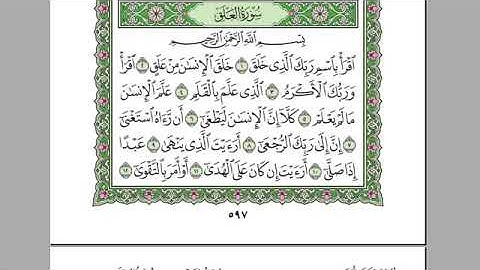 سُورَةُ العَلَقِ
بِسْمِ اللَّهِ الرَّحْمَٰنِ الرَّحِيمِ
ٱقۡرَأۡ بِٱسۡمِ رَبِّكَ ٱلَّذِي خَلَقَ ١ خَلَقَ ٱلۡإِنسَٰنَ مِنۡ عَلَقٍ ٢ ٱقۡرَأۡ
وَرَبُّكَ ٱلۡأَكۡرَمُ ٣ ٱلَّذِي عَلَّمَ بِٱلۡقَلَمِ ٤ عَلَّمَ ٱلۡإِنسَٰنَ
مَا لَمۡ يَعۡلَمۡ ٥ كَلَّآ إِنَّ ٱلۡإِنسَٰنَ لَيَطۡغَىٰٓ ٦ أَن رَّءَاهُ ٱسۡتَغۡنَىٰٓ
٧ إِنَّ إِلَىٰ رَبِّكَ ٱلرُّجۡعَىٰٓ ٨ أَرَءَيۡتَ ٱلَّذِي يَنۡهَىٰ ٩ عَبۡدًا
إِذَا صَلَّىٰٓ ١٠ أَرَءَيۡتَ إِن كَانَ عَلَى ٱلۡهُدَىٰٓ ١١ أَوۡ أَمَرَ بِٱلتَّقۡوَىٰٓ ١٢
٥٩٧